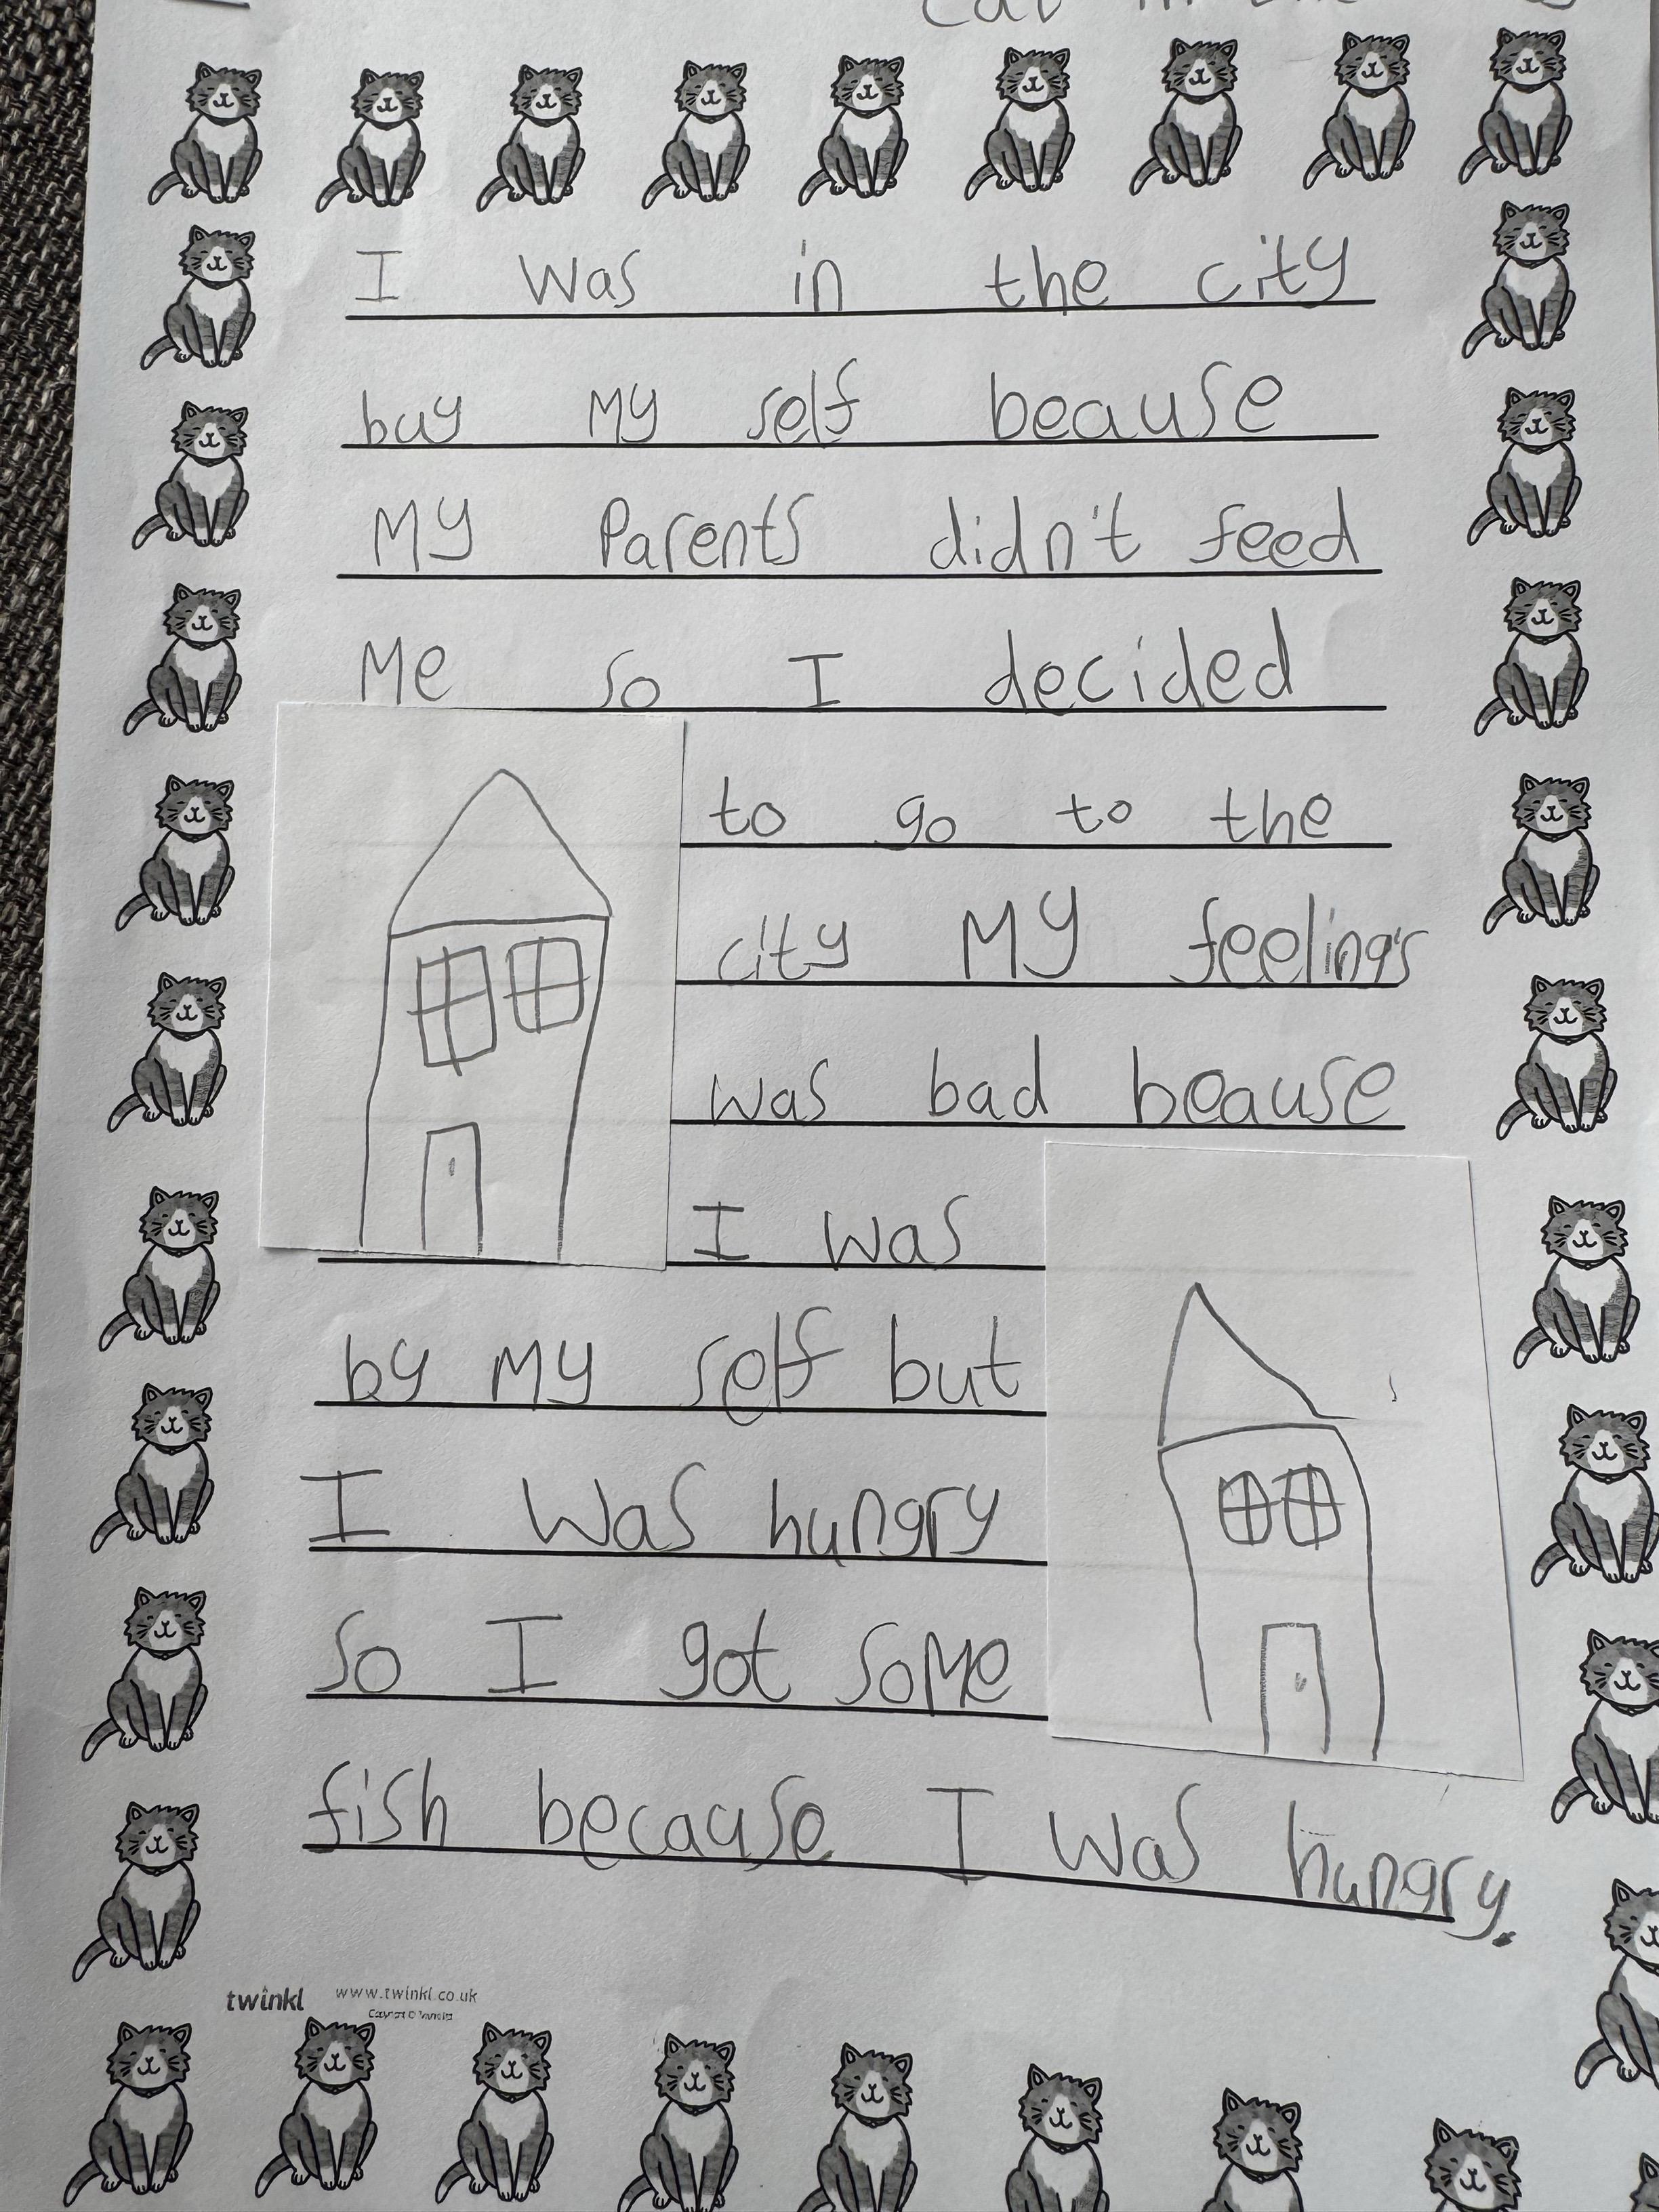 I was in the city
buy my self beause
My Parents didn't feed
Me so I decided
to go to the
city My feeling's
was bad beause
I was
by My self but
I was hungry
so I got some
fish because I was hungry.
twinkl www.twinkl.co.uk